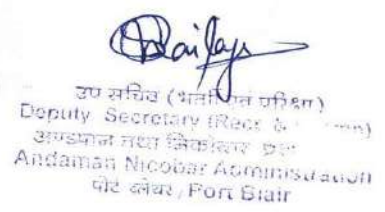 उप सचिव (भर्ती एवं परीक्षा)
Deputy Secretary (Rect. &
अण्डमान तथा निकोबार
Andaman Nicobar Administration
पोर्ट ब्लेयर / Port Blair